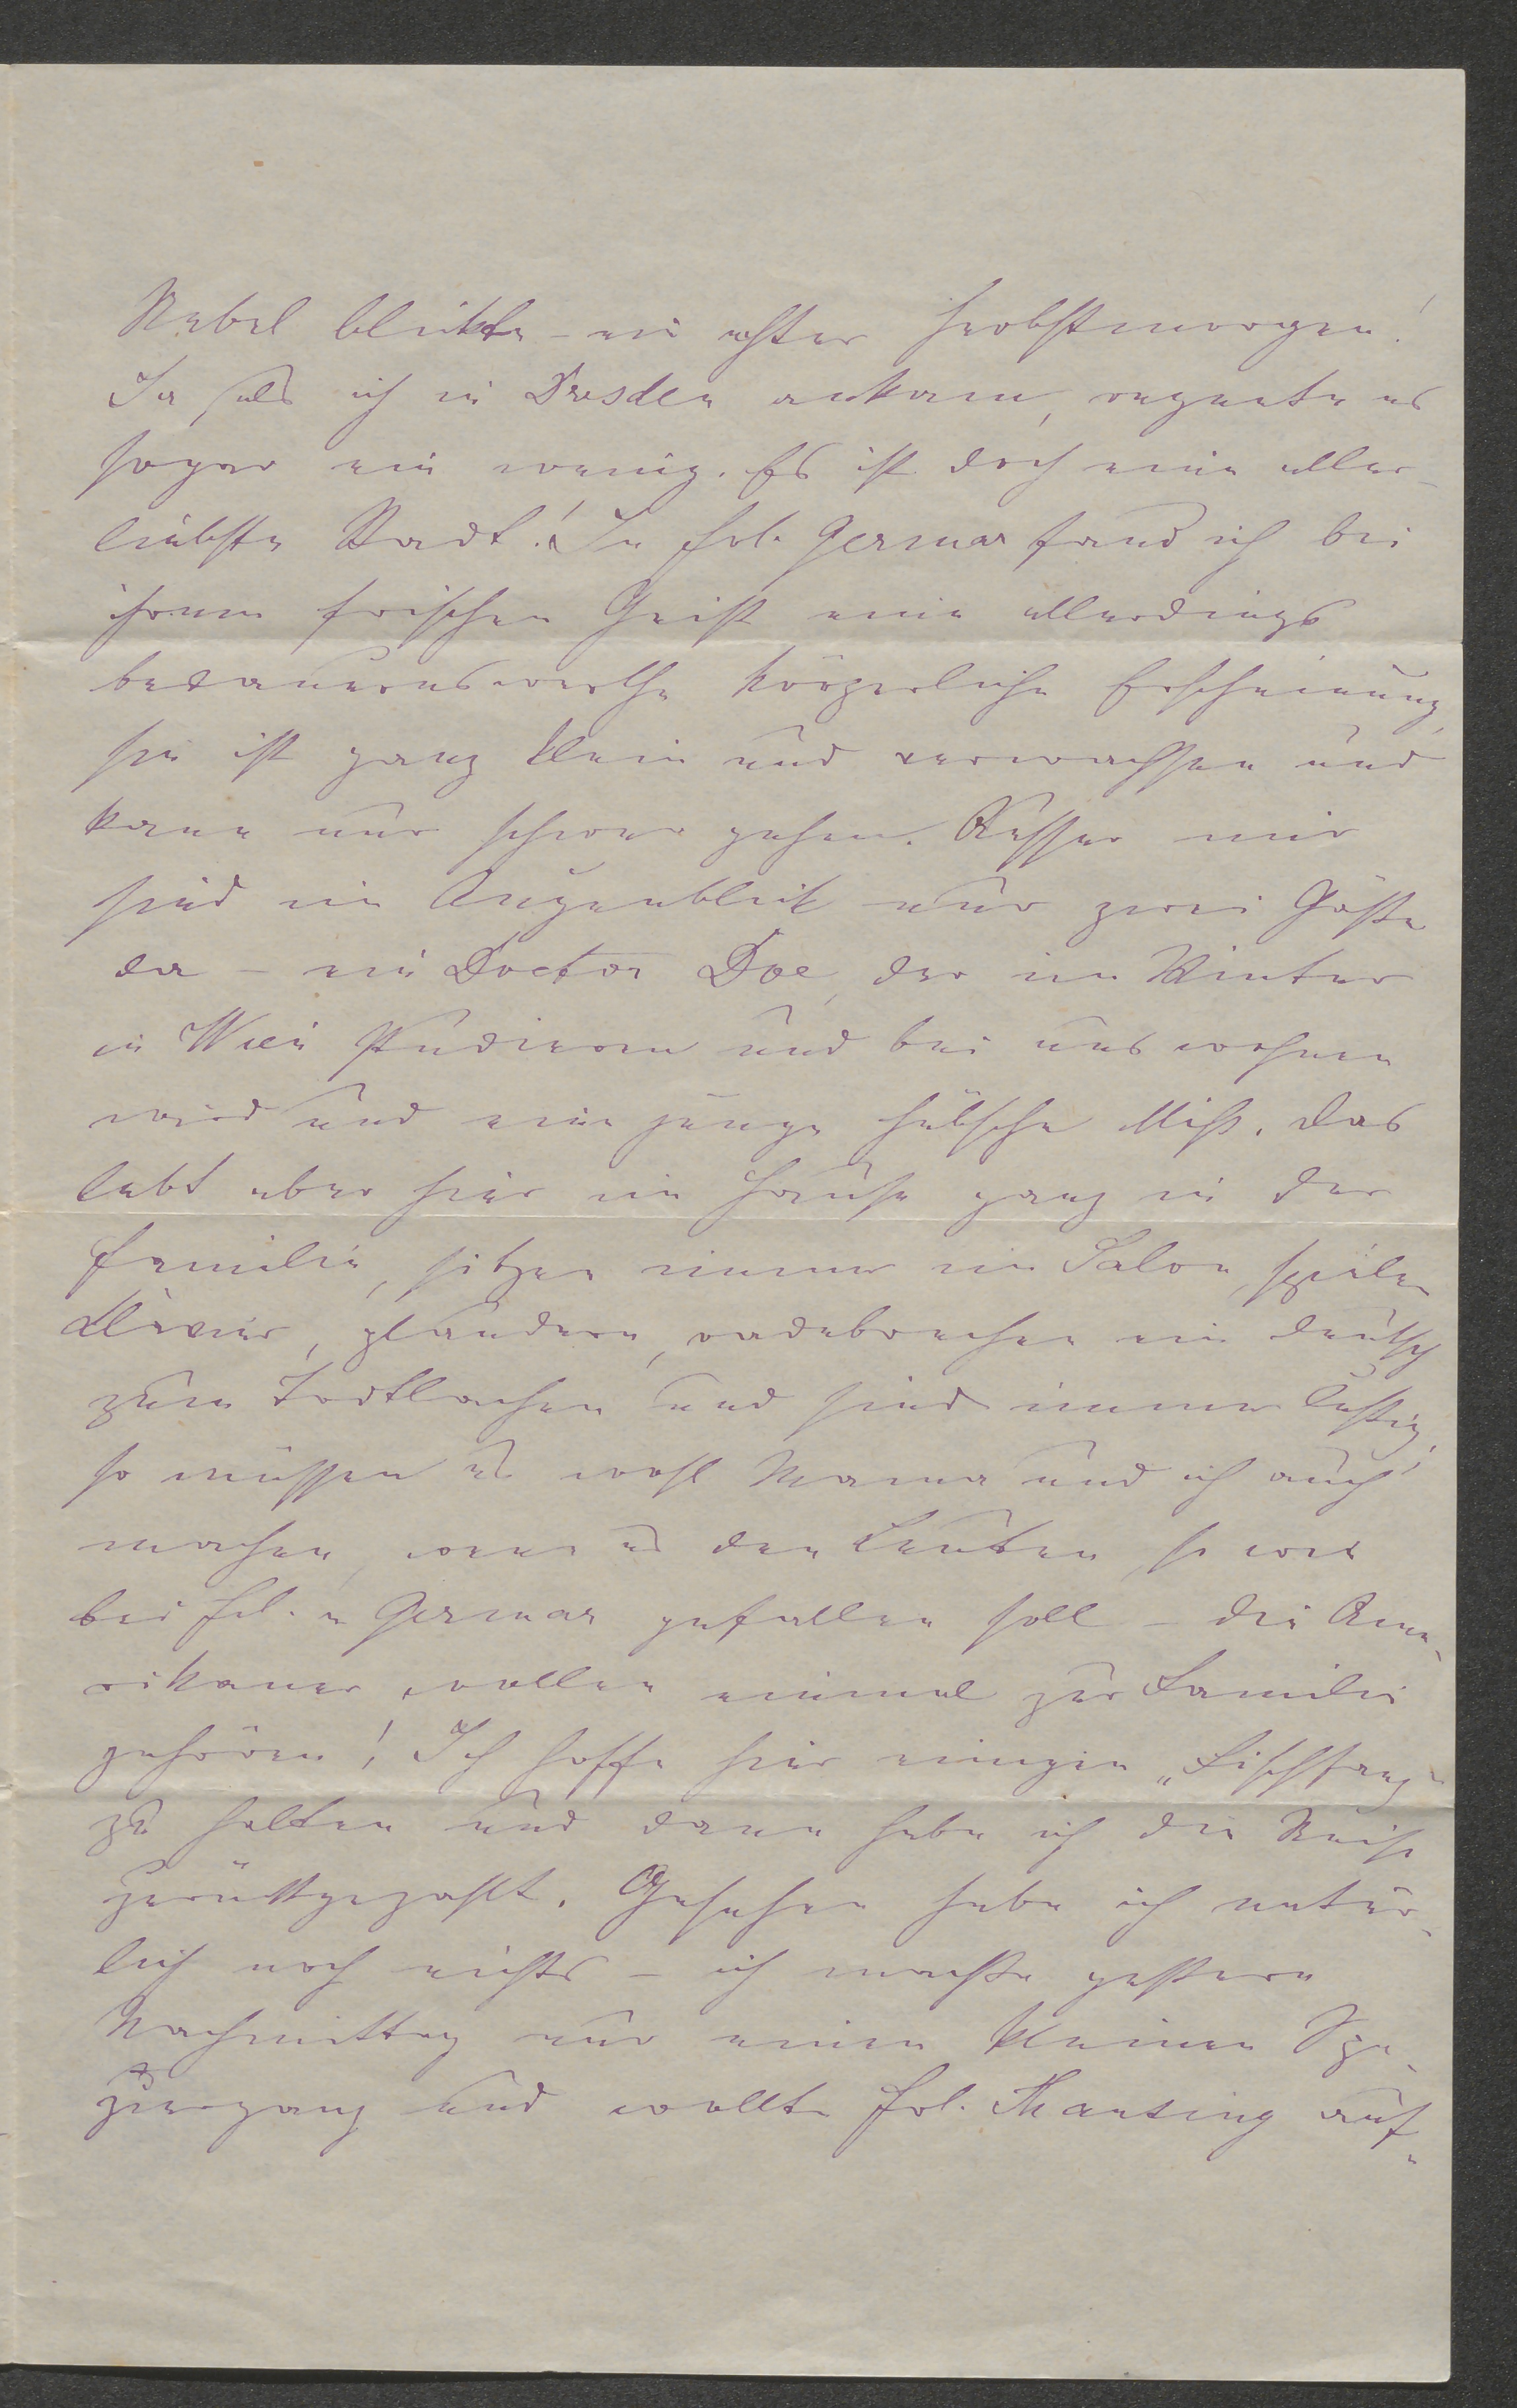 Nebel blickte – ein echter Herbstmorgen!
Ja, als ich in Dresden ankam, regnete es
sogar ein wenig. Es ist doch eine aller-
liebste Stadt! In Frl. Germar fand ich bei
ihrem frischen Geist eine allerdings
bedauernswerthe körperliche Erscheinung,
sie ist ganz klein und verwachsen und
kann nur schwer gehen. Außer mir
sind im Augenblick nur zwei Gäste
da – ein Doctor Doe, der im Winter
in Wien studieren und bei uns wohnen
wird und eine junge hübsche Miß. Das
lebt aber hier im Hause ganz in der
Familie, sitzen immer im Salon, spielen
Klavier, plaudern, radebrechen ein deutsch
zum Todtlachen und sind immer lustig,
so müssen es wohl Mama und ich auch
machen, wenn es den Leuten so wie
bei Frl. v Germar gefallen soll – die Ame-
rikaner wollen einmal zur Familie
gehören! Ich hoffe hier einigen „Fischfang"
zu halten und dann habe ich die Reise
zurückgezahlt. Gesehen habe ich natür-
lich noch nichts – ich machte gestern
Nachmittag nur einen kleinen Spa-
ziergang und wollte Frl. Mansing auf-